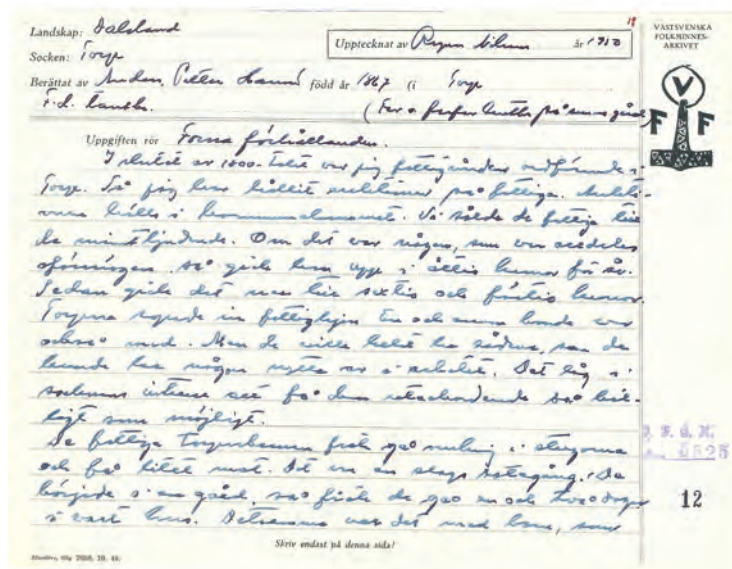 19
Landskap: Dalsland
VÄSTSVENSKA
FOLKMINNES-
ARKIVET
Upptecknat av Ragnar Nilsson år 1950
Socken:
Berättat av Anders Petter född år 1867 (i
Uppgiften rör Forna förhållanden.
I slutet av 1800-talet var jag fattigvårdens ordförande i
Så jag har hållit auktioner på fattiga. Auktio-
nerna hölls i kommunalrummet. Vi sålde de fattiga till
de minstbjudande. Om det var någon, som var alldeles
oförmögen, så gick han upp i åttio kronor för år.
Sedan gick det ner till sextio och förtio kronor.
Torparna togo in fattighjon. En och annan bonde var
också med. Men de ville helst ha sådana, som de
kunde ha någon nytta av i arbetet. Det låg i
socknens intresse att få dem utackorderade så bil-
ligt som möjligt.
De fattiga fick gå omkring i stugorna
och få litet mat. Det var en slags sotagång. De
började i en gård, så fick de gå en och två dagar
i vart hus. Detsamma var det med barn, som
V
F F
5525
12
Skriv endast på denna sida!